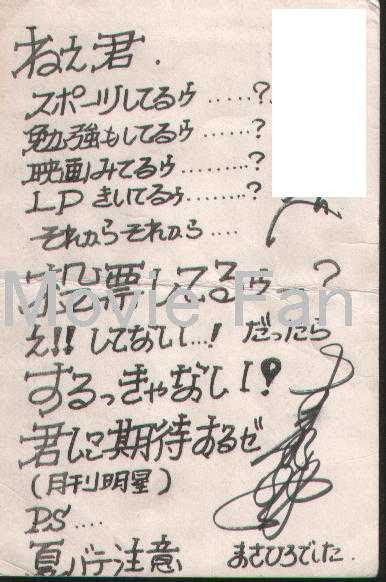 ねぇ君.
スポーツしてるゥ……?
勉強もしてるゥ……?
映画みてるゥ………?
LPきいてるゥ………?
それからそれから….
投票してるゥ…?
Movie Fan
え!!してない…!だったら
するっきゃない!
君に期待するゼ
(月刊明星)
P.S....
夏バテ注意
まさひろでした.